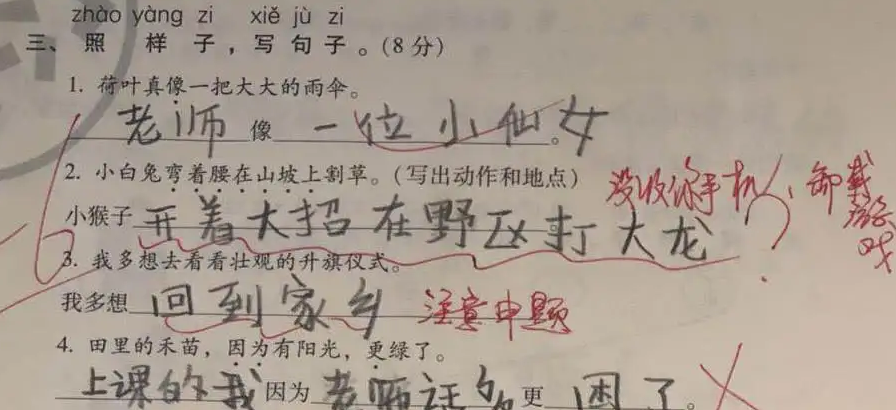 zhào yàng zi xiě jù zi
三、照 样 子，写 句 子。(8分)
1. 荷叶真像一把大大的雨伞。
老师 像 一位小仙女。
2. 小白兔弯着腰在山坡上割草。(写出动作和地点)
没收你手机，卸载游戏
小猴子 开着大招在野区打大龙
?
3. 我多想去看看壮观的升旗仪式。
我多想 回到家乡 注意审题
4. 田里的禾苗，因为有阳光，更绿了。
上课的我 因为 老师 更 困了。